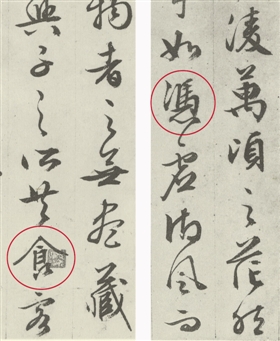 凌萬頃之茫然
乎如憑虛御風而
物者之無盡藏
與子之所共食客